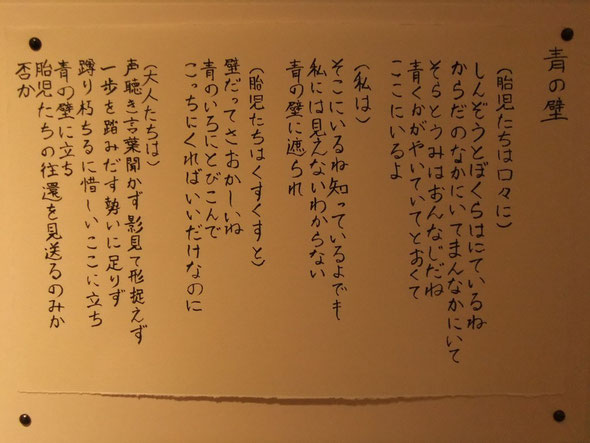 青の壁
(胎児たちは口々に)
しんぞうとぼくらはにているね
からだのなかにいてまんなかにいて
そらとうみはおんなじだね
青くかがやいていてとおくて
ここにいるよ
(私は)
そこにいるね知っているよでも
私には見えないわからない
青の壁に遮られ
(胎児たちはくすくすと)
壁だってさおかしいね
青のいろにとびこんで
こっちにくればいいだけなのに
(大人たちは)
声聴き言葉聞かず影見て形捉えず
一歩を踏みだす勢いに足りず
蹲り朽ちるに惜しいここに立ち
青の壁に立ち
胎児たちの往還を見送るのみか
否か